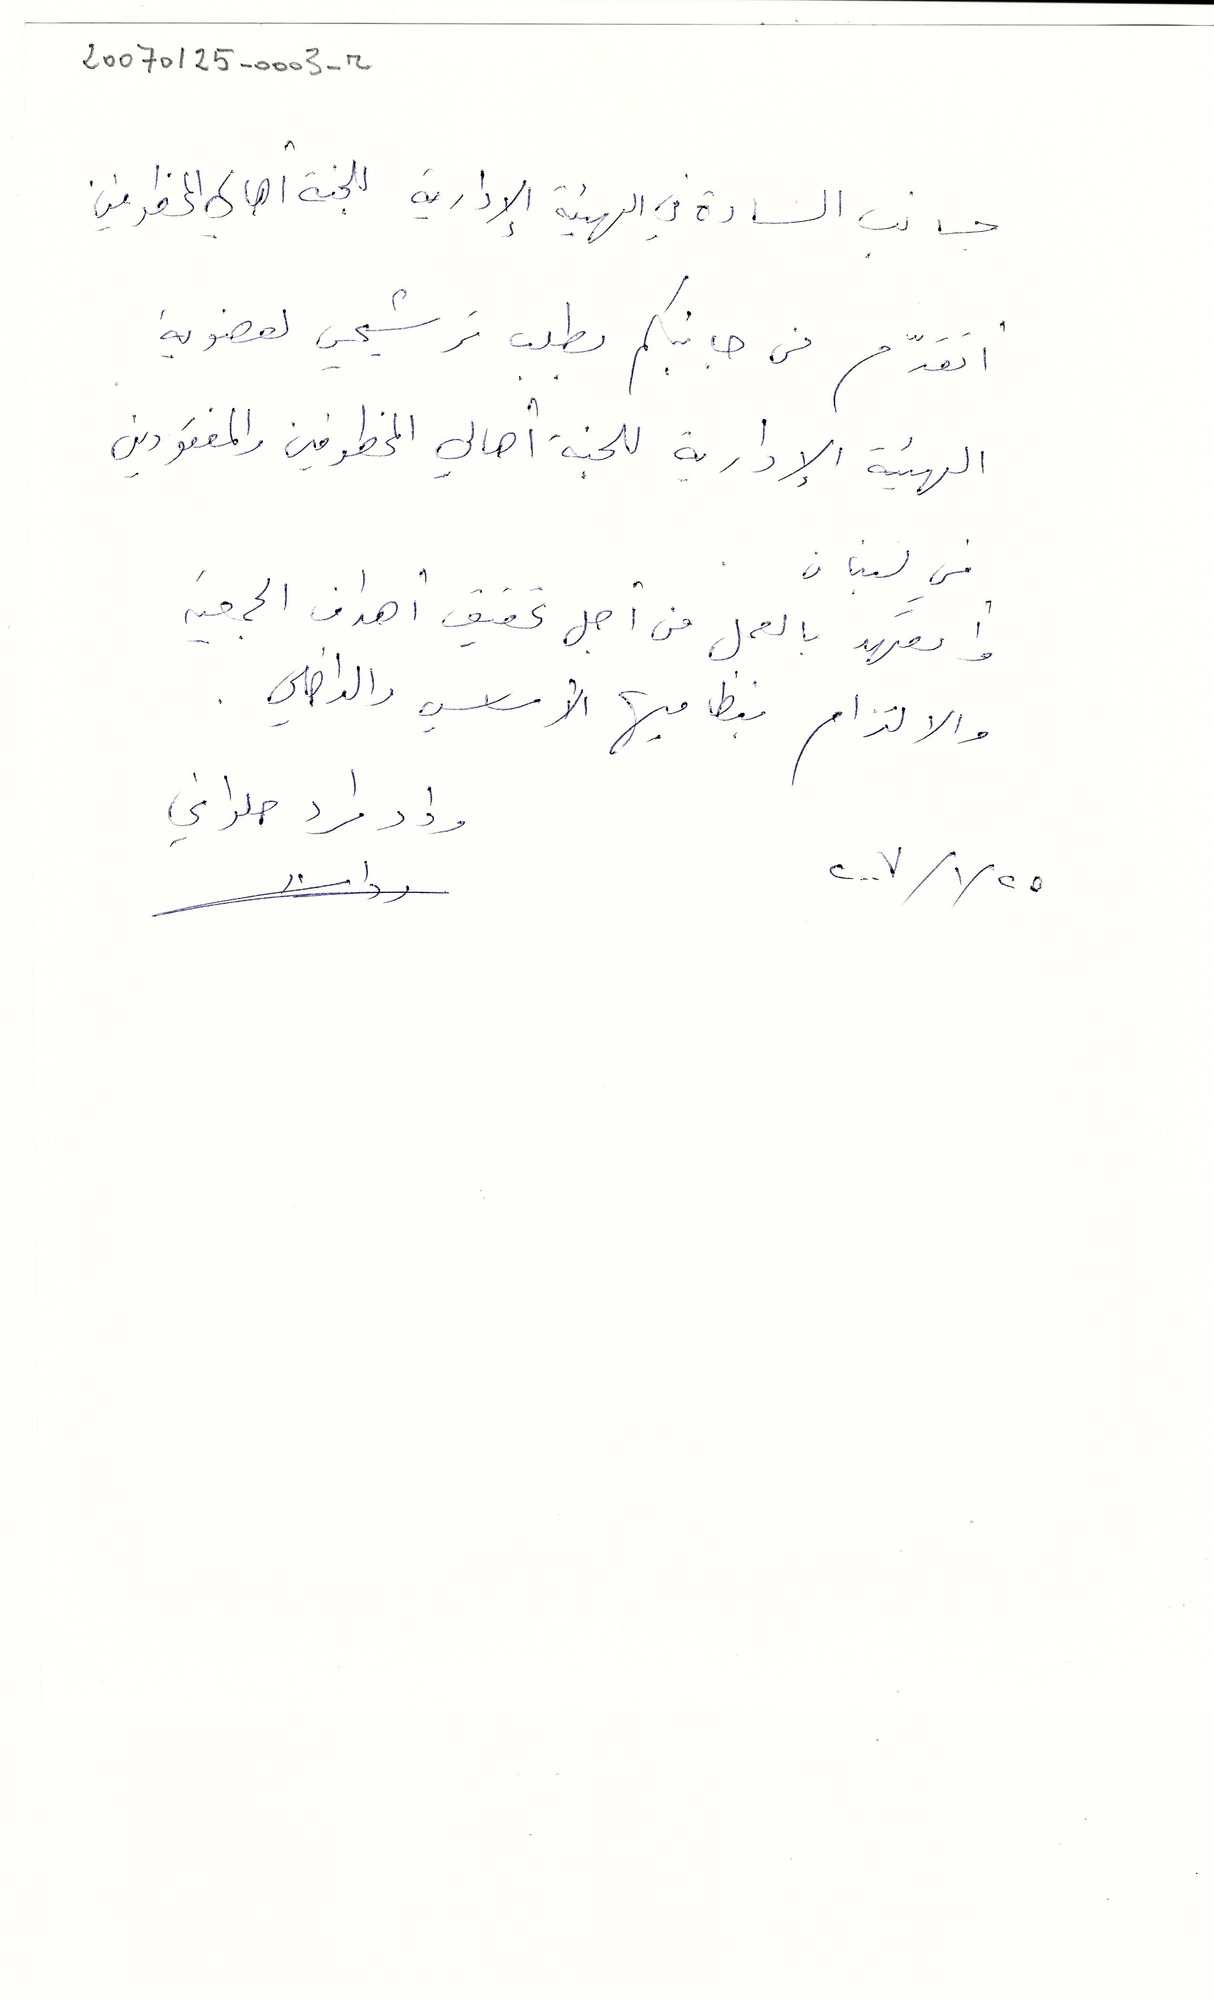 20070125-0003-r
جانب السادة في الهيئة الإدارية للجنة أهالي المخطوفين
أتقدّم من جانبكم بطلب ترشيحي لعضوية
الهيئة الإدارية للجنة أهالي المخطوفين والمفقودين
في لبنان
وأتعهّد بالعمل من أجل تحقيق أهداف الجمعية
والالتزام بنظاميها الأساسي والداخلي.
وداد مراد حلواني
٢٠٠٧/١/٢٥